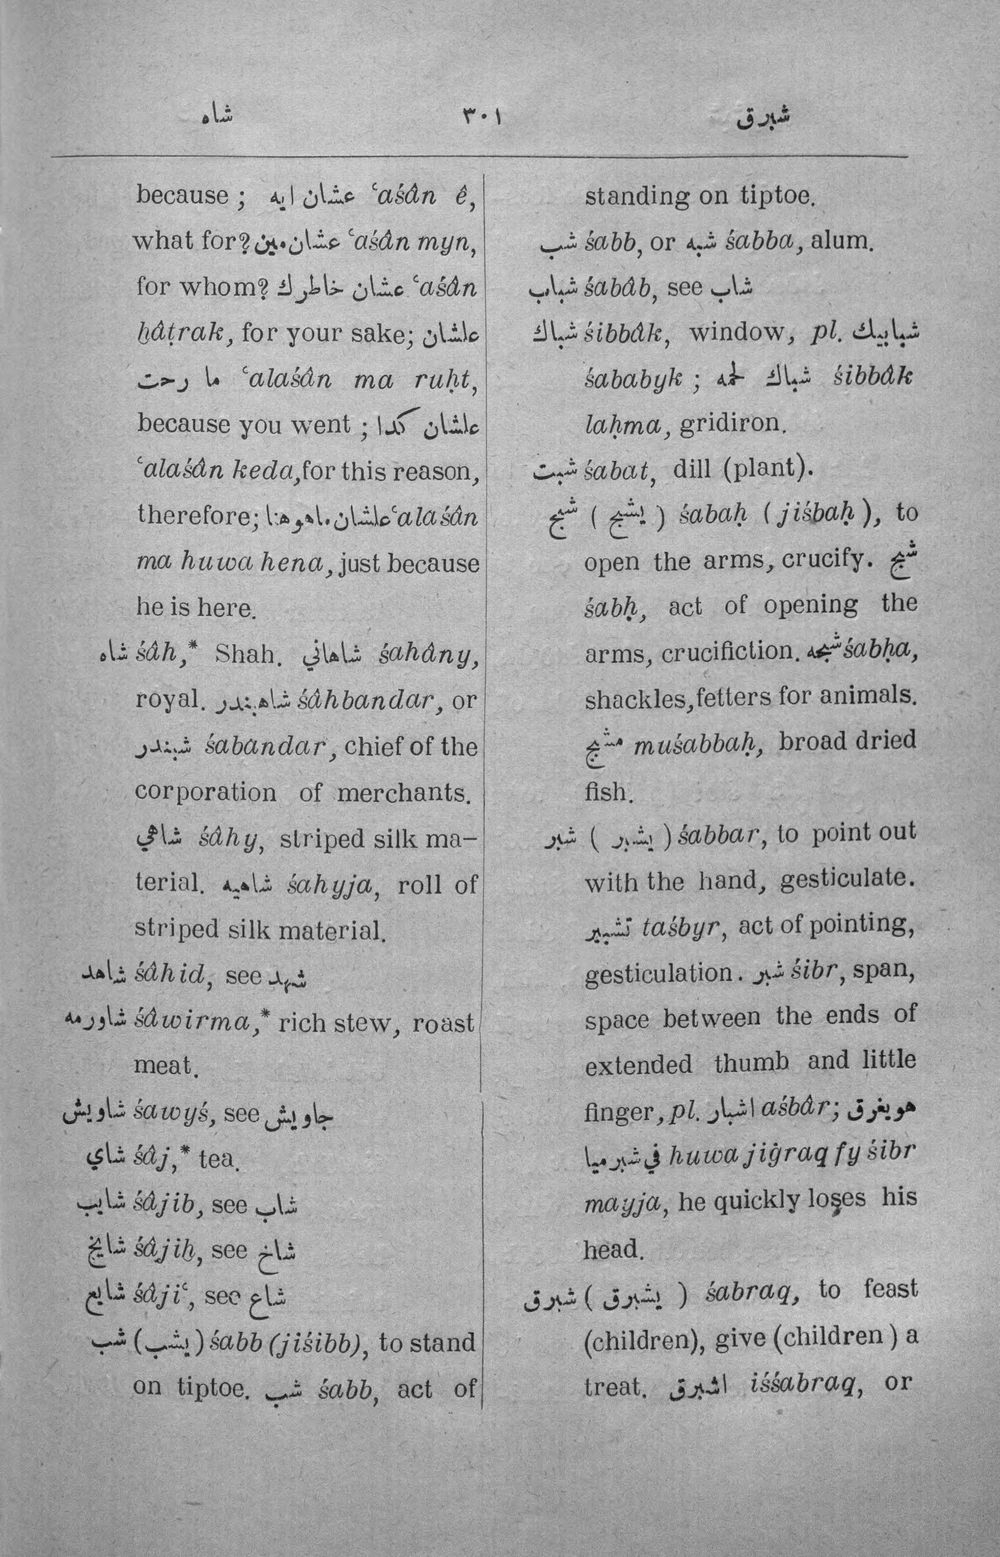 شاه ٣٠١ شبرق
because ; عشان ايه ʿaśân ê,
what for? عشان مين ʿaśân myn,
for whom? عشان خاطرك ʿaśân
ḫâṭrak, for your sake; علشان
ما رحت ʿalaśân ma ruḥt,
because you went ; علشان كدا
ʿalaśân keda, for this reason,
therefore; علشان ماهو هنا ʿalaśân
ma huwa hena, just because
he is here.
شاه śâh,* Shah. شاهاني śahâny,
royal. شاهبندر śâhbandar, or
شبندر śabandar, chief of the
corporation of merchants.
شاهي śâhy, striped silk ma-
terial. شاهيه śahyja, roll of
striped silk material.
شاهد śâhid, see شهد
شاورمه śâwirma,* rich stew, roast
meat.
شاويش śawyś, see جاويش
شاي śâj,* tea.
شايب śâjib, see شاب
شايخ śâjiḫ, see شاخ
شايع śâjiʿ, see شاع
شب (يشب) śabb (jiśibb), to stand
on tiptoe. شب śabb, act of
standing on tiptoe.
شب śabb, or شبه śabba, alum.
شباب śabâb, see شاب
شباك śibbâk, window, pl. شبابيك
śababyk ; شباك لحمه śibbâk
laḥma, gridiron.
شبت śabat, dill (plant).
شبح ( يشبح ) śabaḥ (jiśbaḥ), to
open the arms, crucify. شبح
śabḥ, act of opening the
arms, crucifiction. شبحه śabḥa,
shackles, fetters for animals.
مشبح muśabbaḥ, broad dried
fish.
شبر ( يشبر ) śabbar, to point out
with the hand, gesticulate.
تشبير taśbyr, act of pointing,
gesticulation. شبر śibr, span,
space between the ends of
extended thumb and little
finger, pl. اشبار aśbâr; هو يغرق
في شبر ميا huwa jiġraq fy śibr
mayja, he quickly loses his
head.
شبرق ( يشبرق ) śabraq, to feast
(children), give (children) a
treat. اشبرق iśśabraq, or